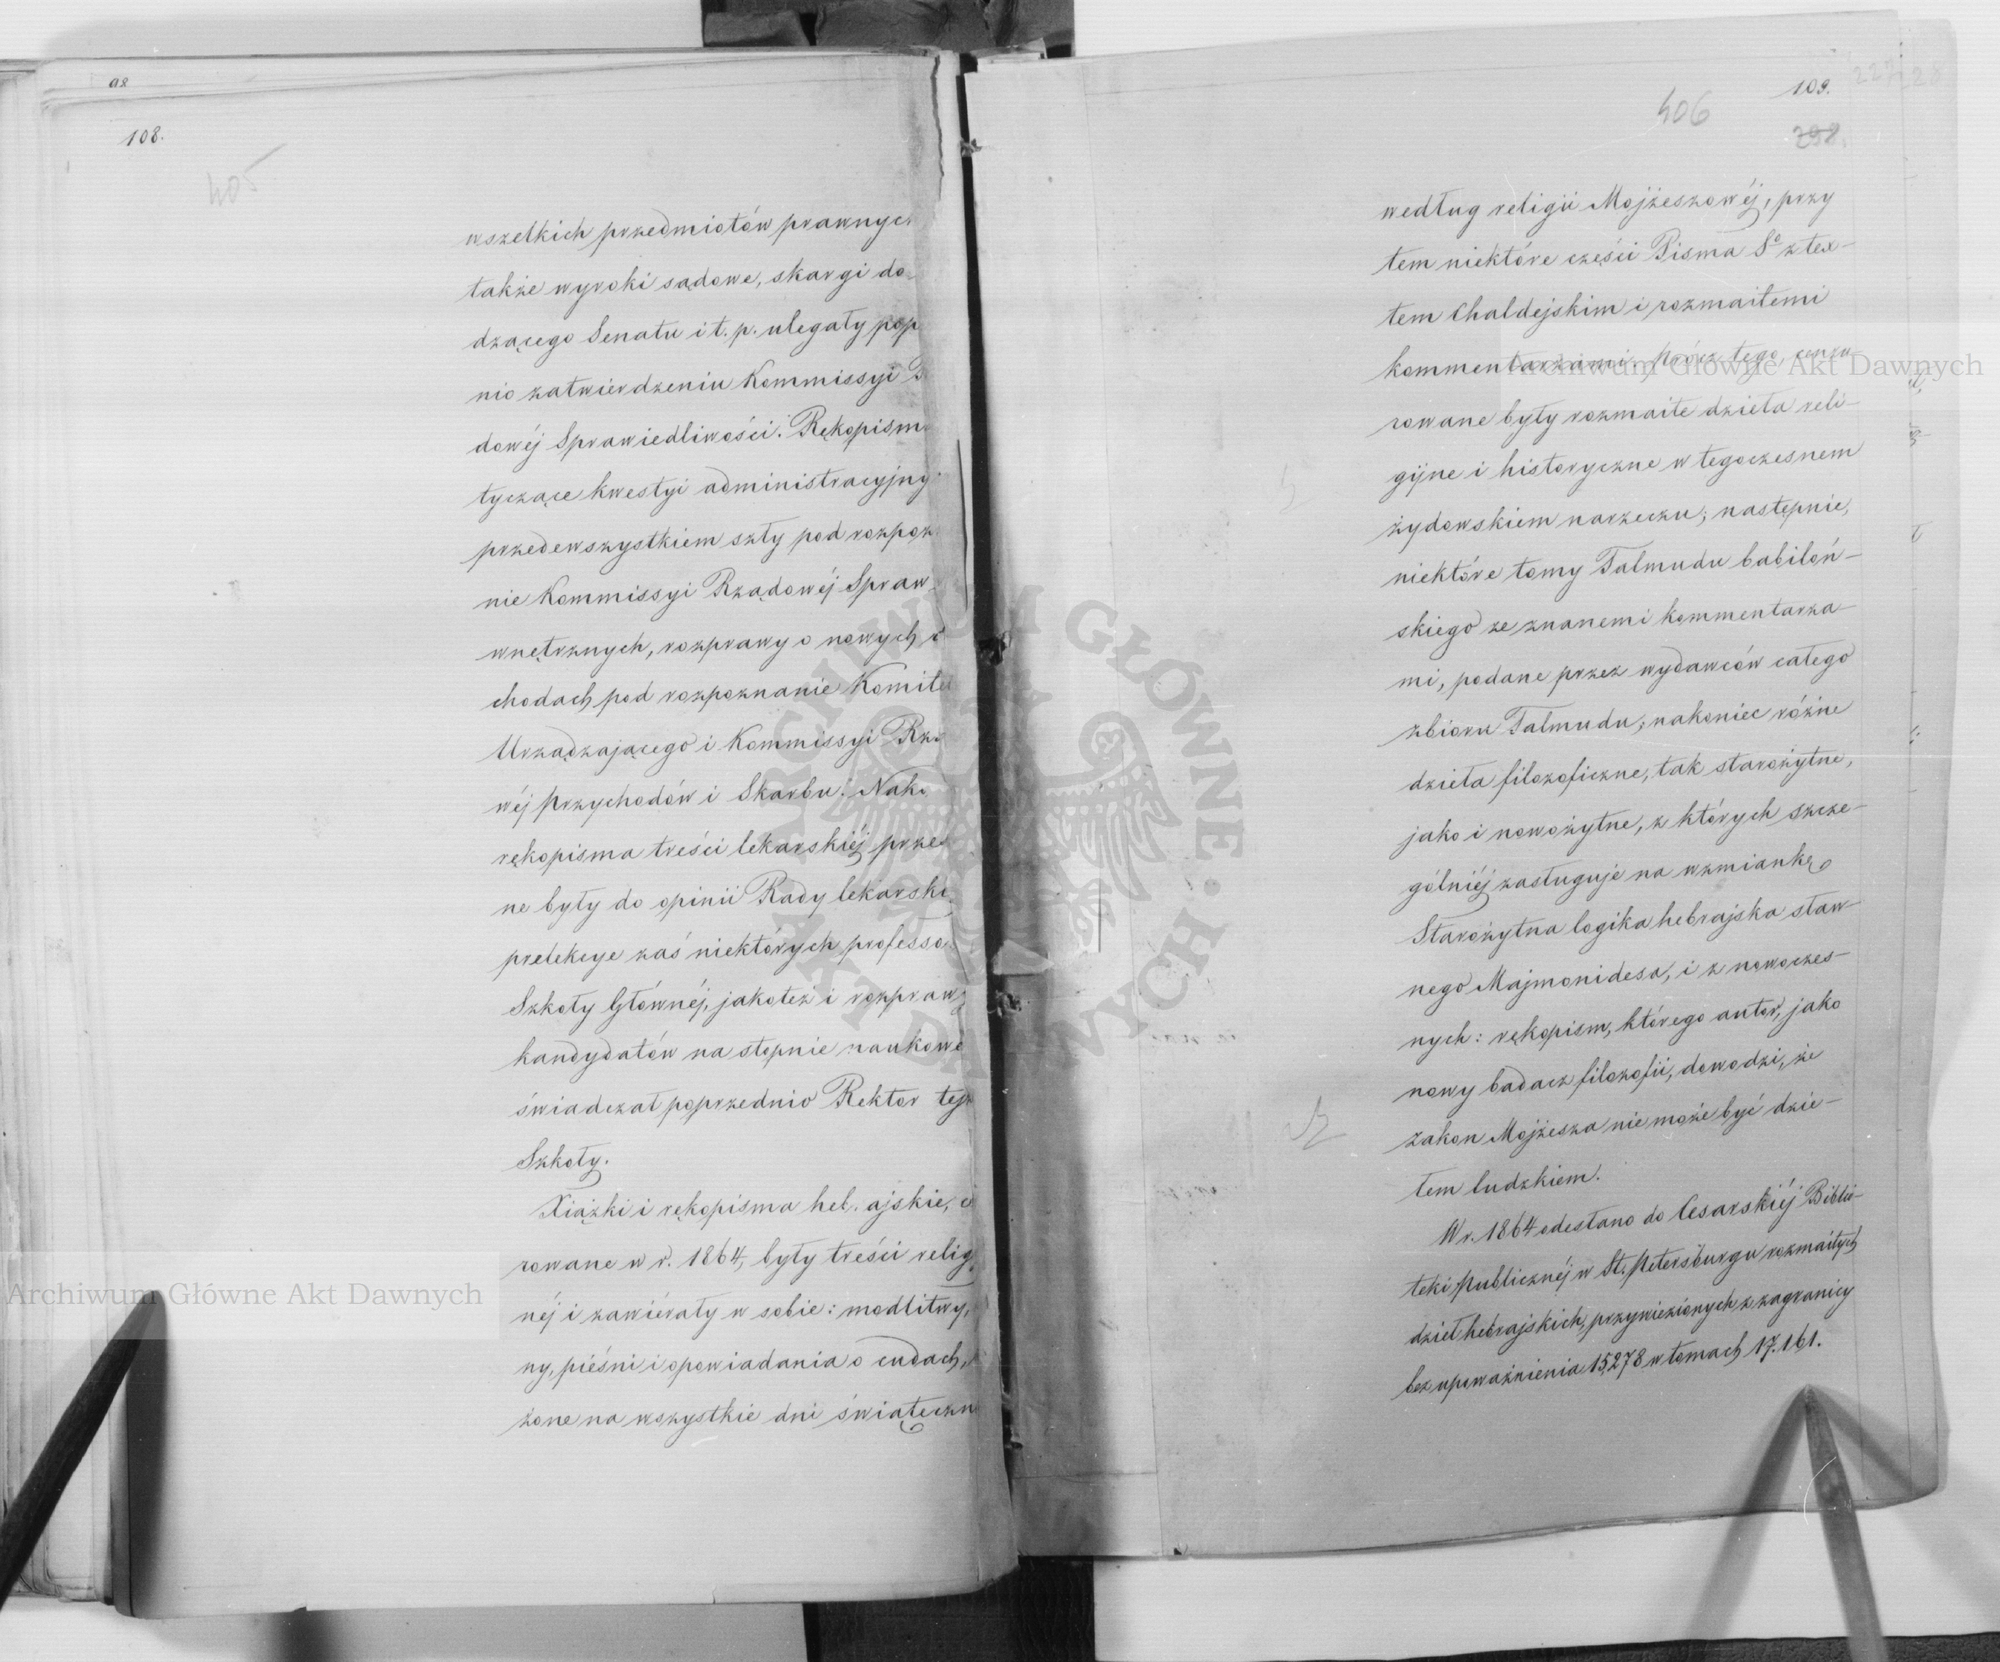 98
108.
405
wszelkich przedmiotów prawnych
także wyroki sądowe, skargi do
dzącego Senatu i t. p. ulegały pop
nio zatwierdzeniu Kommissyi
dowéj Sprawiedliwości. Rękopism
tyczące kwestyi administracyjny
przedewszystkiem szły pod rozpoz
nie Kommissyi Rządowéj Spraw
wnętrznych, rozprawy o nowych
chodach pod rozpoznanie Komite
Urządzającego i Kommissyi Rzą
wéj Przychodów i Skarbu. Nako
rękopisma treści lekarskiéj prze
ne były do opinii Rady lekarski
prelekcye zaś niektórych professo
Szkoły Głównéj, jakoteż i rozpraw
kandydatów na stopnie naukowe
świadczał poprzednio Rektor tej
Szkoły.
Xiążki i rękopisma heb. ajskie, c
rowane w r. 1864, były treści relig
néj i zawiérały w sobie: modlitwy,
ny, pieśni i opowiadania o cudach,
żone na wszystkie dni świąteczn
109.
406
298.
według religii Mojżeszowéj, przy
tem niektóre części Pisma Sº z tex-
tem Chaldejskim i rozmaitemi
kommentarzami. prócz tego, cenzu
rowane były rozmaite dzieła reli-
gijne i historyczne w tegoczesnem
żydowskiem narzeczu; następnie,
niektóre tomy Talmudu babiloń-
skiego ze znanemi kommentarza-
mi, podane przez wydawców całego
zbioru Talmudu; nakoniec różne
dzieła filozoficzne, tak starożytne,
jako i nowożytne, z których szcze-
gólniéj zasługuje na wzmiankę
Starożytna logika hebrajska sław-
nego Majmonidesa, i z nowoczes-
nych: rękopism, którego autor, jako
nowy badacz filozofii, dowodzi, że
zakon Mojżesza nie może być dzie-
łem ludzkiem.
W r. 1864 odesłano do Cesarskiéj Biblio-
teki Publicznéj w St. Petersburgu rozmaitych
dzieł hebrajskich, przywiezionych z zagranicy
bez upoważnienia 15,278 w tomach 17.161.
Archiwum Główne Akt Dawnych
Archiwum Główne Akt Dawnych